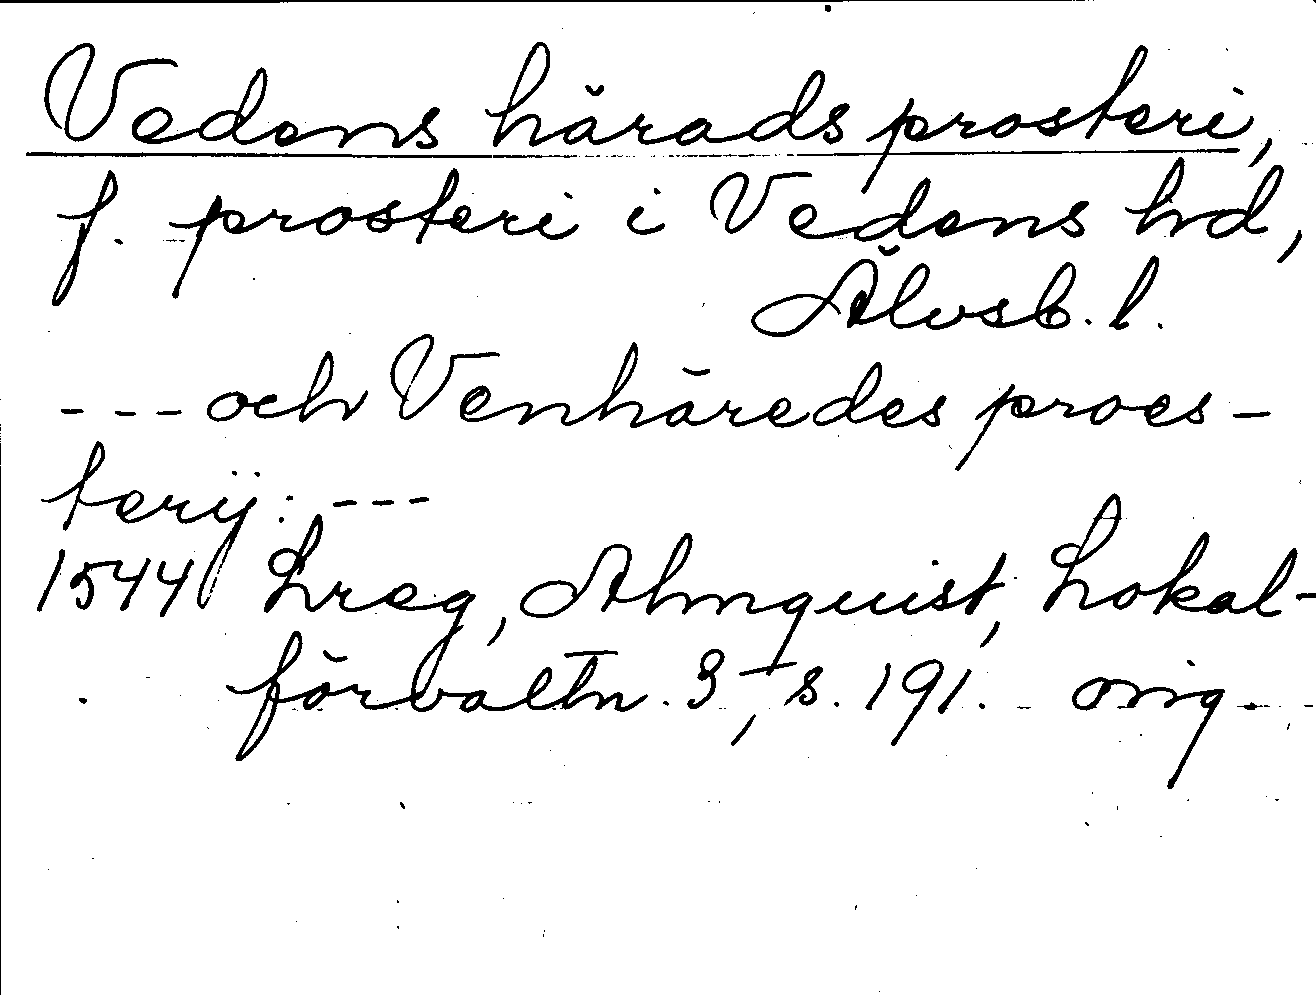 Vedens härads prosteri,
f. prosteri i Vedens hd,
Älvsb. l.
--- och Venhäredes proes-
terij: ---
1544 Lreg, Almquist, Lokal-
förvaltn. 3, s. 191. orig.